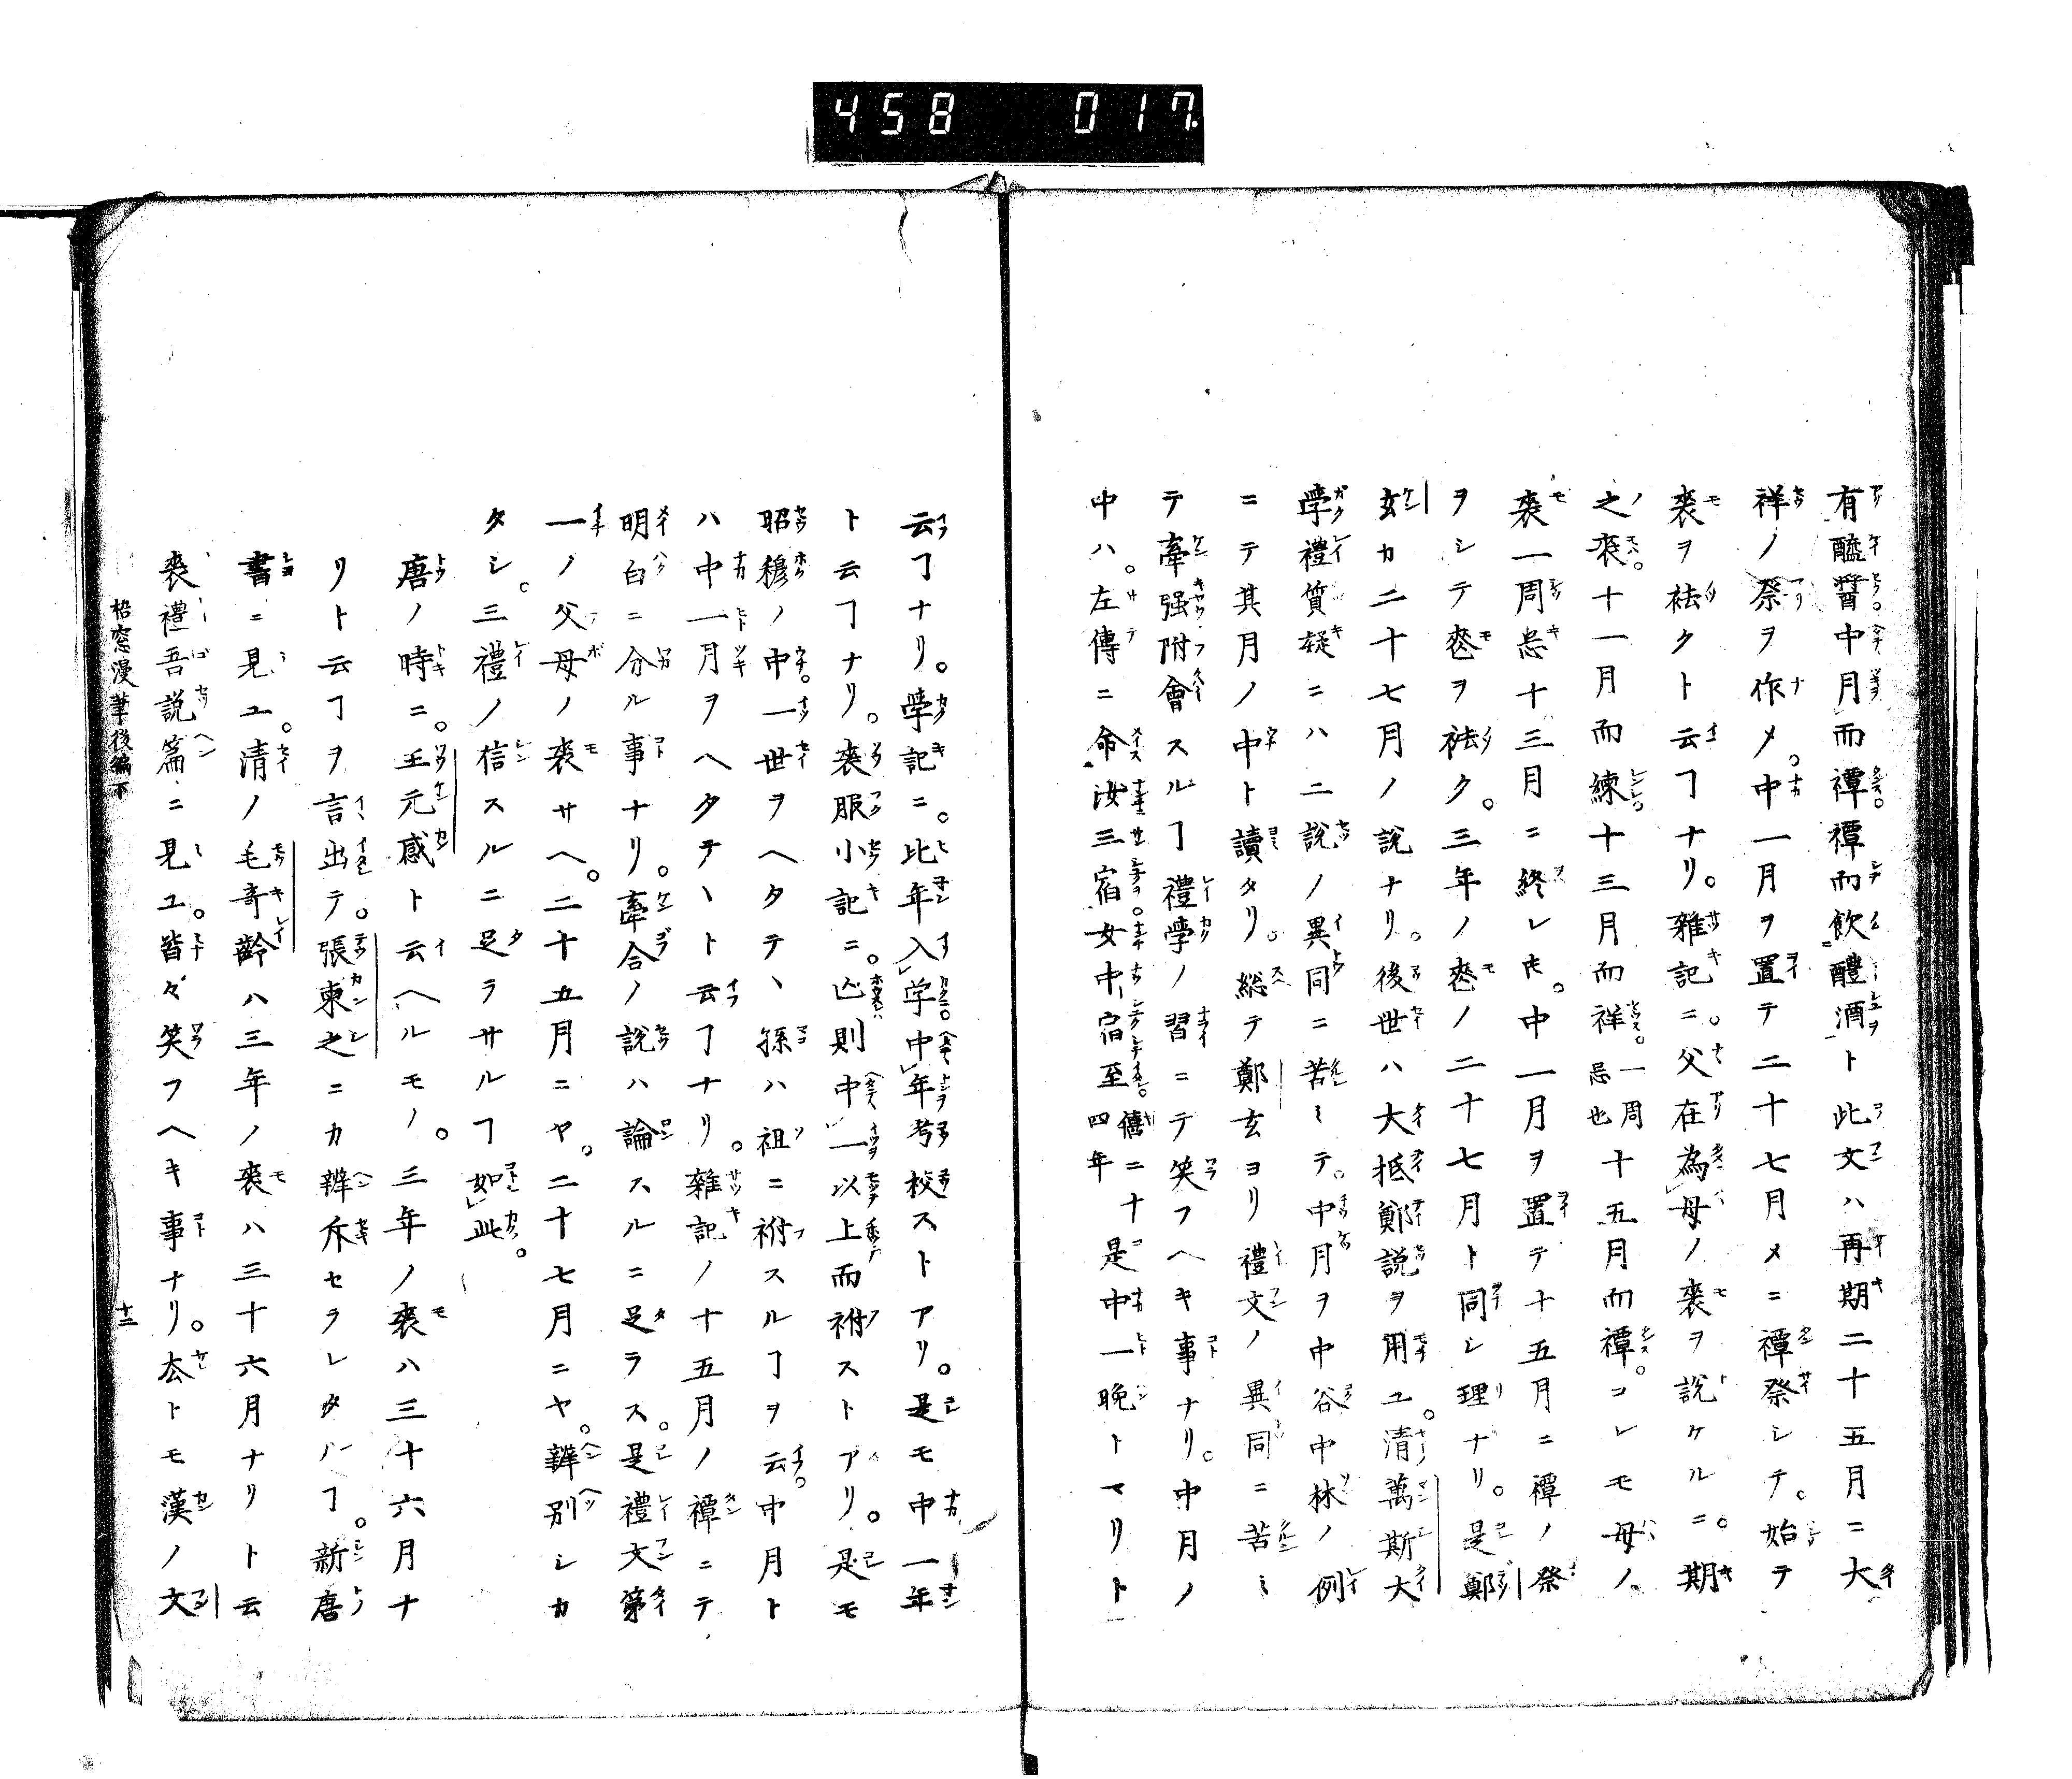 458 017
有醯醬。中月而禫。禫而飲醴酒ト此文ハ再期二十五月ニ大
祥ノ祭ヲ作メ。中一月ヲ置テ二十七月メニ禫祭シテ。始テ
喪ヲ祛クト云ヿナリ。雜記ニ。父在為母ノ喪ヲ說ケルニ。期
之喪。十一月而練。十三月而祥。一周忌也十五月而禫。コレモ母ノ
喪一周忌十三月ニ終レ𪜈。中一月ヲ置テ十五月ニ禫ノ祭
ヲシテ喪ヲ祛ク。三年ノ喪ノ二十七月ト同シ理ナリ。是鄭
玄カ二十七月ノ說ナリ。後世ハ大抵鄭說ヲ用ユ。清萬斯大
學禮質疑ニハ二說ノ異同ニ苦ミテ。中月ヲ中谷中林ノ例
ニテ其月ノ中ト讀タリ。総テ鄭玄ヨリ禮文ノ異同ニ苦ミ
テ牽强附會スルヿ禮學ノ習ニテ笑フヘキ事ナリ。中月ノ
中ハ。左傳ニ命汝三宿女中宿至。僖二十四年是中一晩トマリト
云ヿナリ。學記ニ。比年入学。中年考校ストアリ。是モ中一年
ト云ヿナリ。喪服小記ニ。亡則中一以上而祔ストアリ。是モ
昭穆ノ中。一世ヲヘタテヽ孫ハ祖ニ祔スルヿヲ云。中月ト
ハ中一月ヲヘタテヽト云ヿナリ。雜記ノ十五月ノ禫ニテ
明白ニ分ル事ナリ。牽合ノ說ハ論スルニ足ラス。是禮文第
一ノ父母ノ喪サヘ。二十五月ニヤ。二十七月ニヤ。辨別シカ
タシ。三禮ノ信スルニ足ラサルヿ如此。
唐ノ時ニ。王元感ト云ヘルモノ。三年ノ喪ハ三十六月ナ
リト云ヿヲ言出テ。張柬之ニカ辨斥セラレタルヿ。新唐
書ニ見ユ。清ノ毛奇齡ハ三年ノ喪ハ三十六月ナリト云
喪禮吾說篇ニ見ユ。皆々笑フヘキ事ナリ。厺トモ漢ノ文
梧窓漫筆後編下 十二